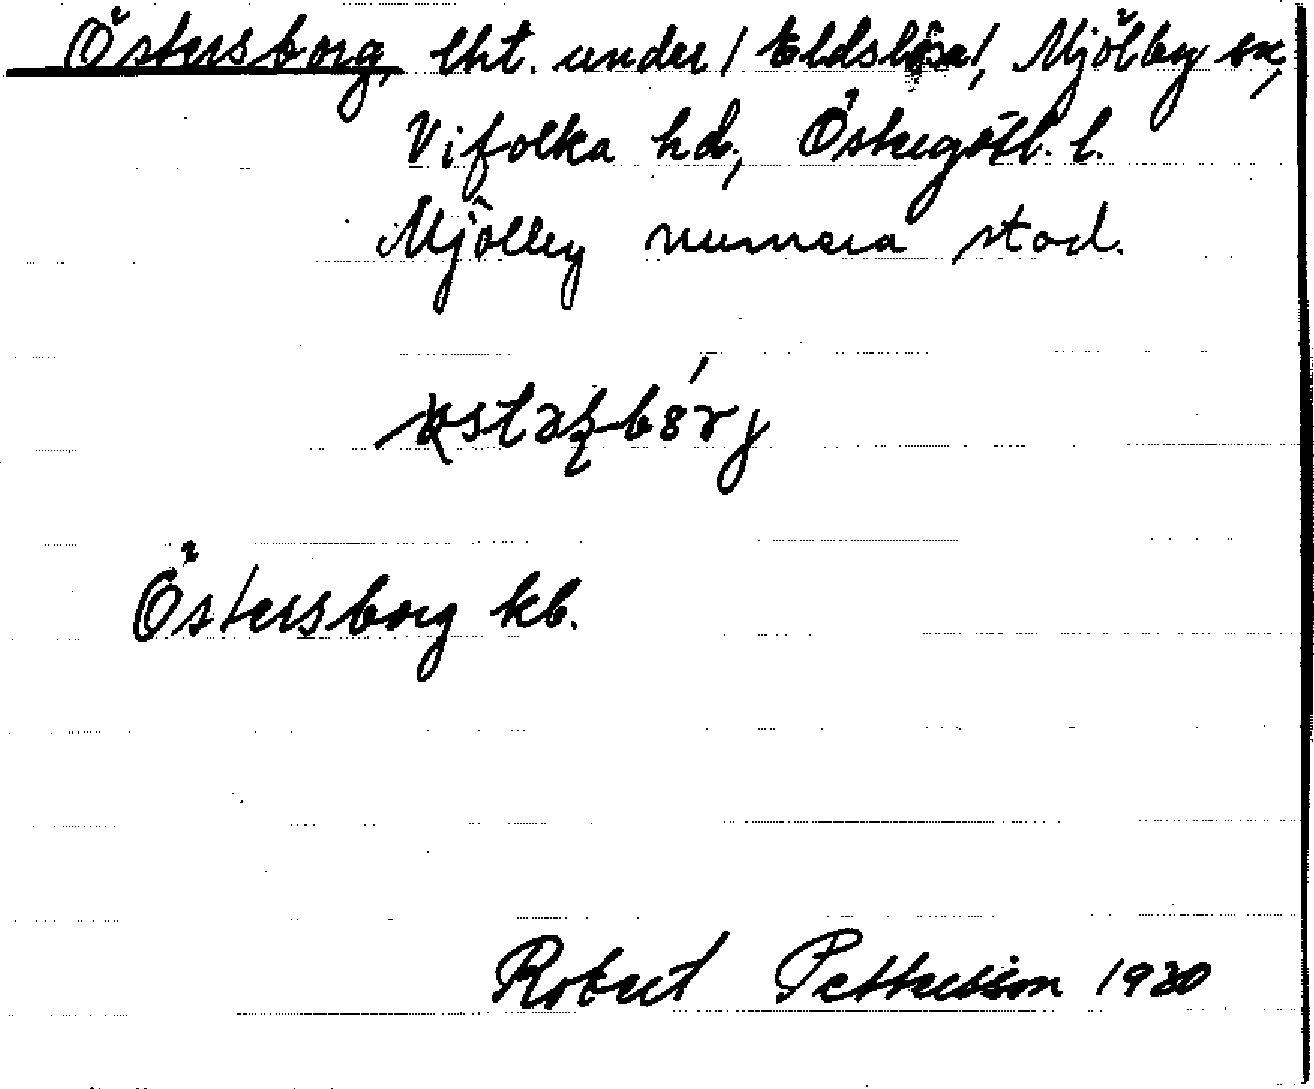 Östersborg, lht. under / Eldslösa /, Mjölby sn,
Vifolka hd., Östergötl. l.
Mjölby numera stad.
Östersborg kb.
Robert Pettersson 1930